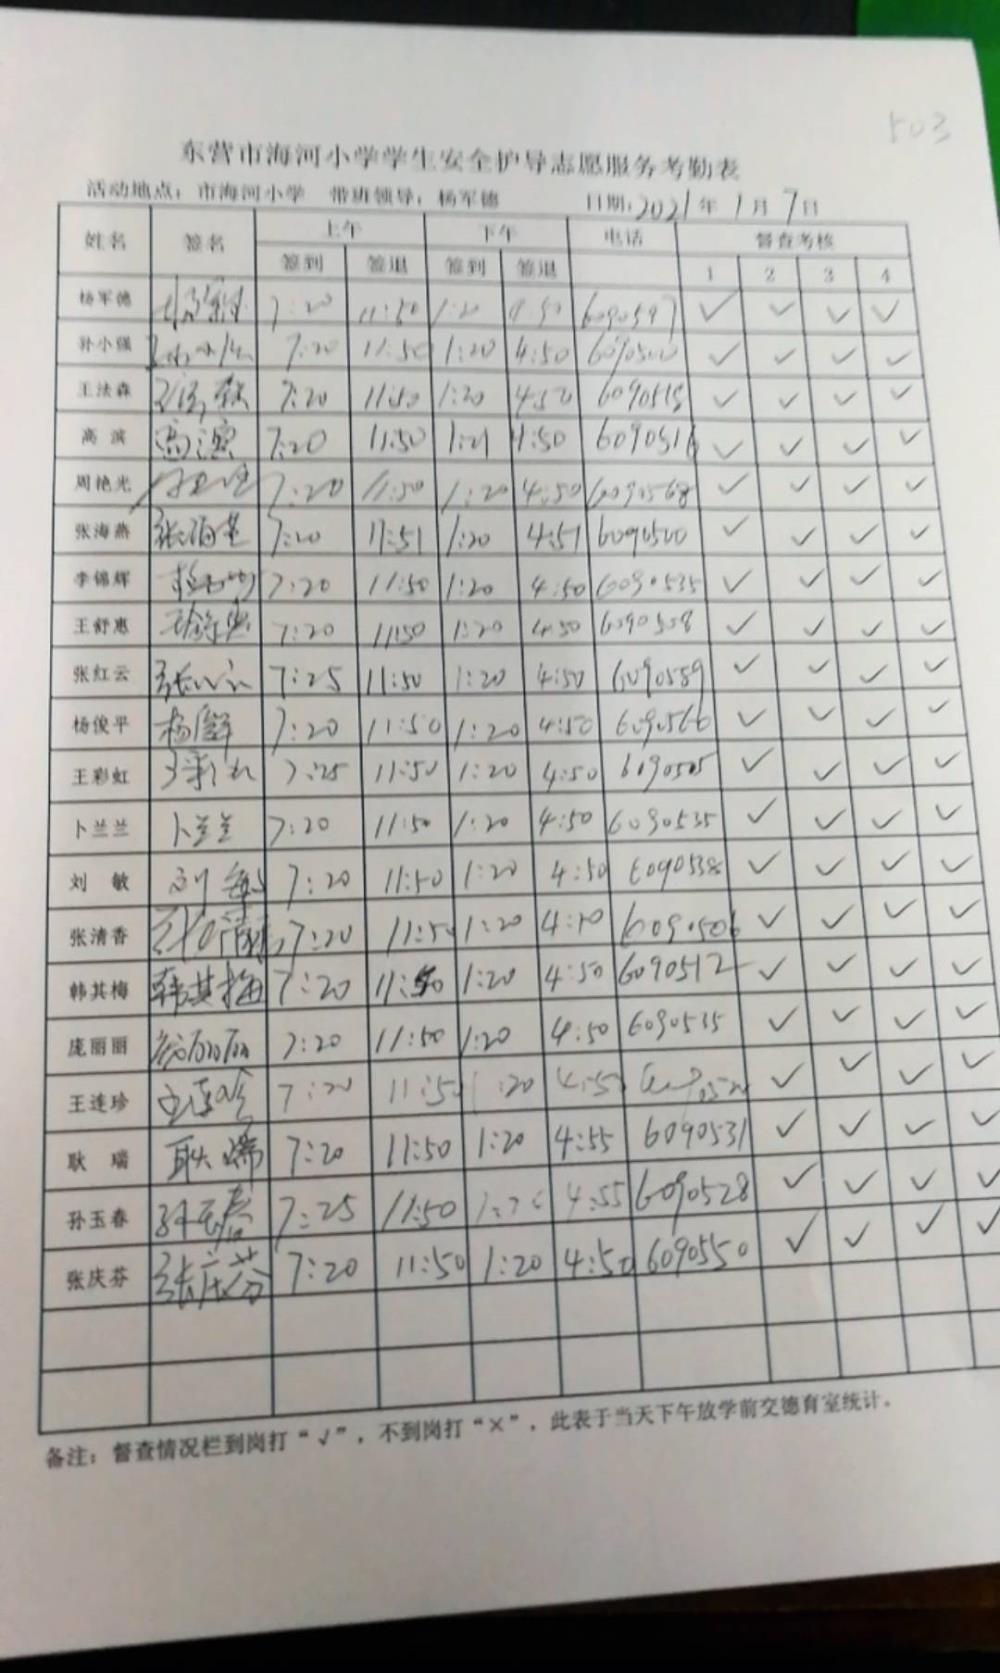 503
东营市海河小学学生安全护导志愿服务考勤表
活动地点：市海河小学 带班领导：杨军德 日期：2021年1月7日
姓名 签名 上午 下午 电话 督查考核
签到 签退 签到 签退 1 2 3 4
杨军德 7:20 11:50 1:20 4:50 6090597 ✓ ✓ ✓ ✓
孙小强 7:20 11:50 1:20 4:50 6090500 ✓ ✓ ✓ ✓
王法森 7:20 11:50 1:20 4:50 6090515 ✓ ✓ ✓ ✓
高滨 高滨 7:20 11:50 1:21 4:50 6090516 ✓ ✓ ✓ ✓
周艳光 7:20 11:50 1:20 4:50 6090568 ✓ ✓ ✓ ✓
张海燕 张海燕 7:20 11:51 1:20 4:51 6090500 ✓ ✓ ✓ ✓
李锦辉 7:20 11:50 1:20 4:50 6090535 ✓ ✓ ✓ ✓
王舒惠 王舒惠 7:20 11:50 1:20 4:50 6090538 ✓ ✓ ✓ ✓
张红云 张红云 7:25 11:50 1:20 4:50 6090589 ✓ ✓ ✓ ✓
杨俊平 杨俊平 7:20 11:50 1:20 4:50 6090566 ✓ ✓ ✓ ✓
王彩虹 王彩虹 7:25 11:50 1:20 4:50 6090505 ✓ ✓ ✓ ✓
卜兰兰 卜兰兰 7:20 11:50 1:20 4:50 6090535 ✓ ✓ ✓ ✓
刘敏 刘敏 7:20 11:50 1:20 4:50 6090538 ✓ ✓ ✓ ✓
张清香 7:20 11:50 1:20 4:50 6090506 ✓ ✓ ✓ ✓
韩其梅 韩其梅 7:20 11:50 1:20 4:50 6090512 ✓ ✓ ✓ ✓
庞丽丽 庞丽丽 7:20 11:50 1:20 4:50 6090535 ✓ ✓ ✓ ✓
王连珍 王连珍 7:20 11:50 1:20 4:50 ✓ ✓ ✓ ✓
耿瑞 耿瑞 7:20 11:50 1:20 4:55 6090531 ✓ ✓ ✓ ✓
孙玉春 孙玉春 7:25 11:50 1:20 4:55 6090528 ✓ ✓ ✓ ✓
张庆芬 张庆芬 7:20 11:50 1:20 4:50 6090550 ✓ ✓ ✓ ✓
备注：督查情况栏到岗打“√”，不到岗打“×”，此表于当天下午放学前交德育室统计。